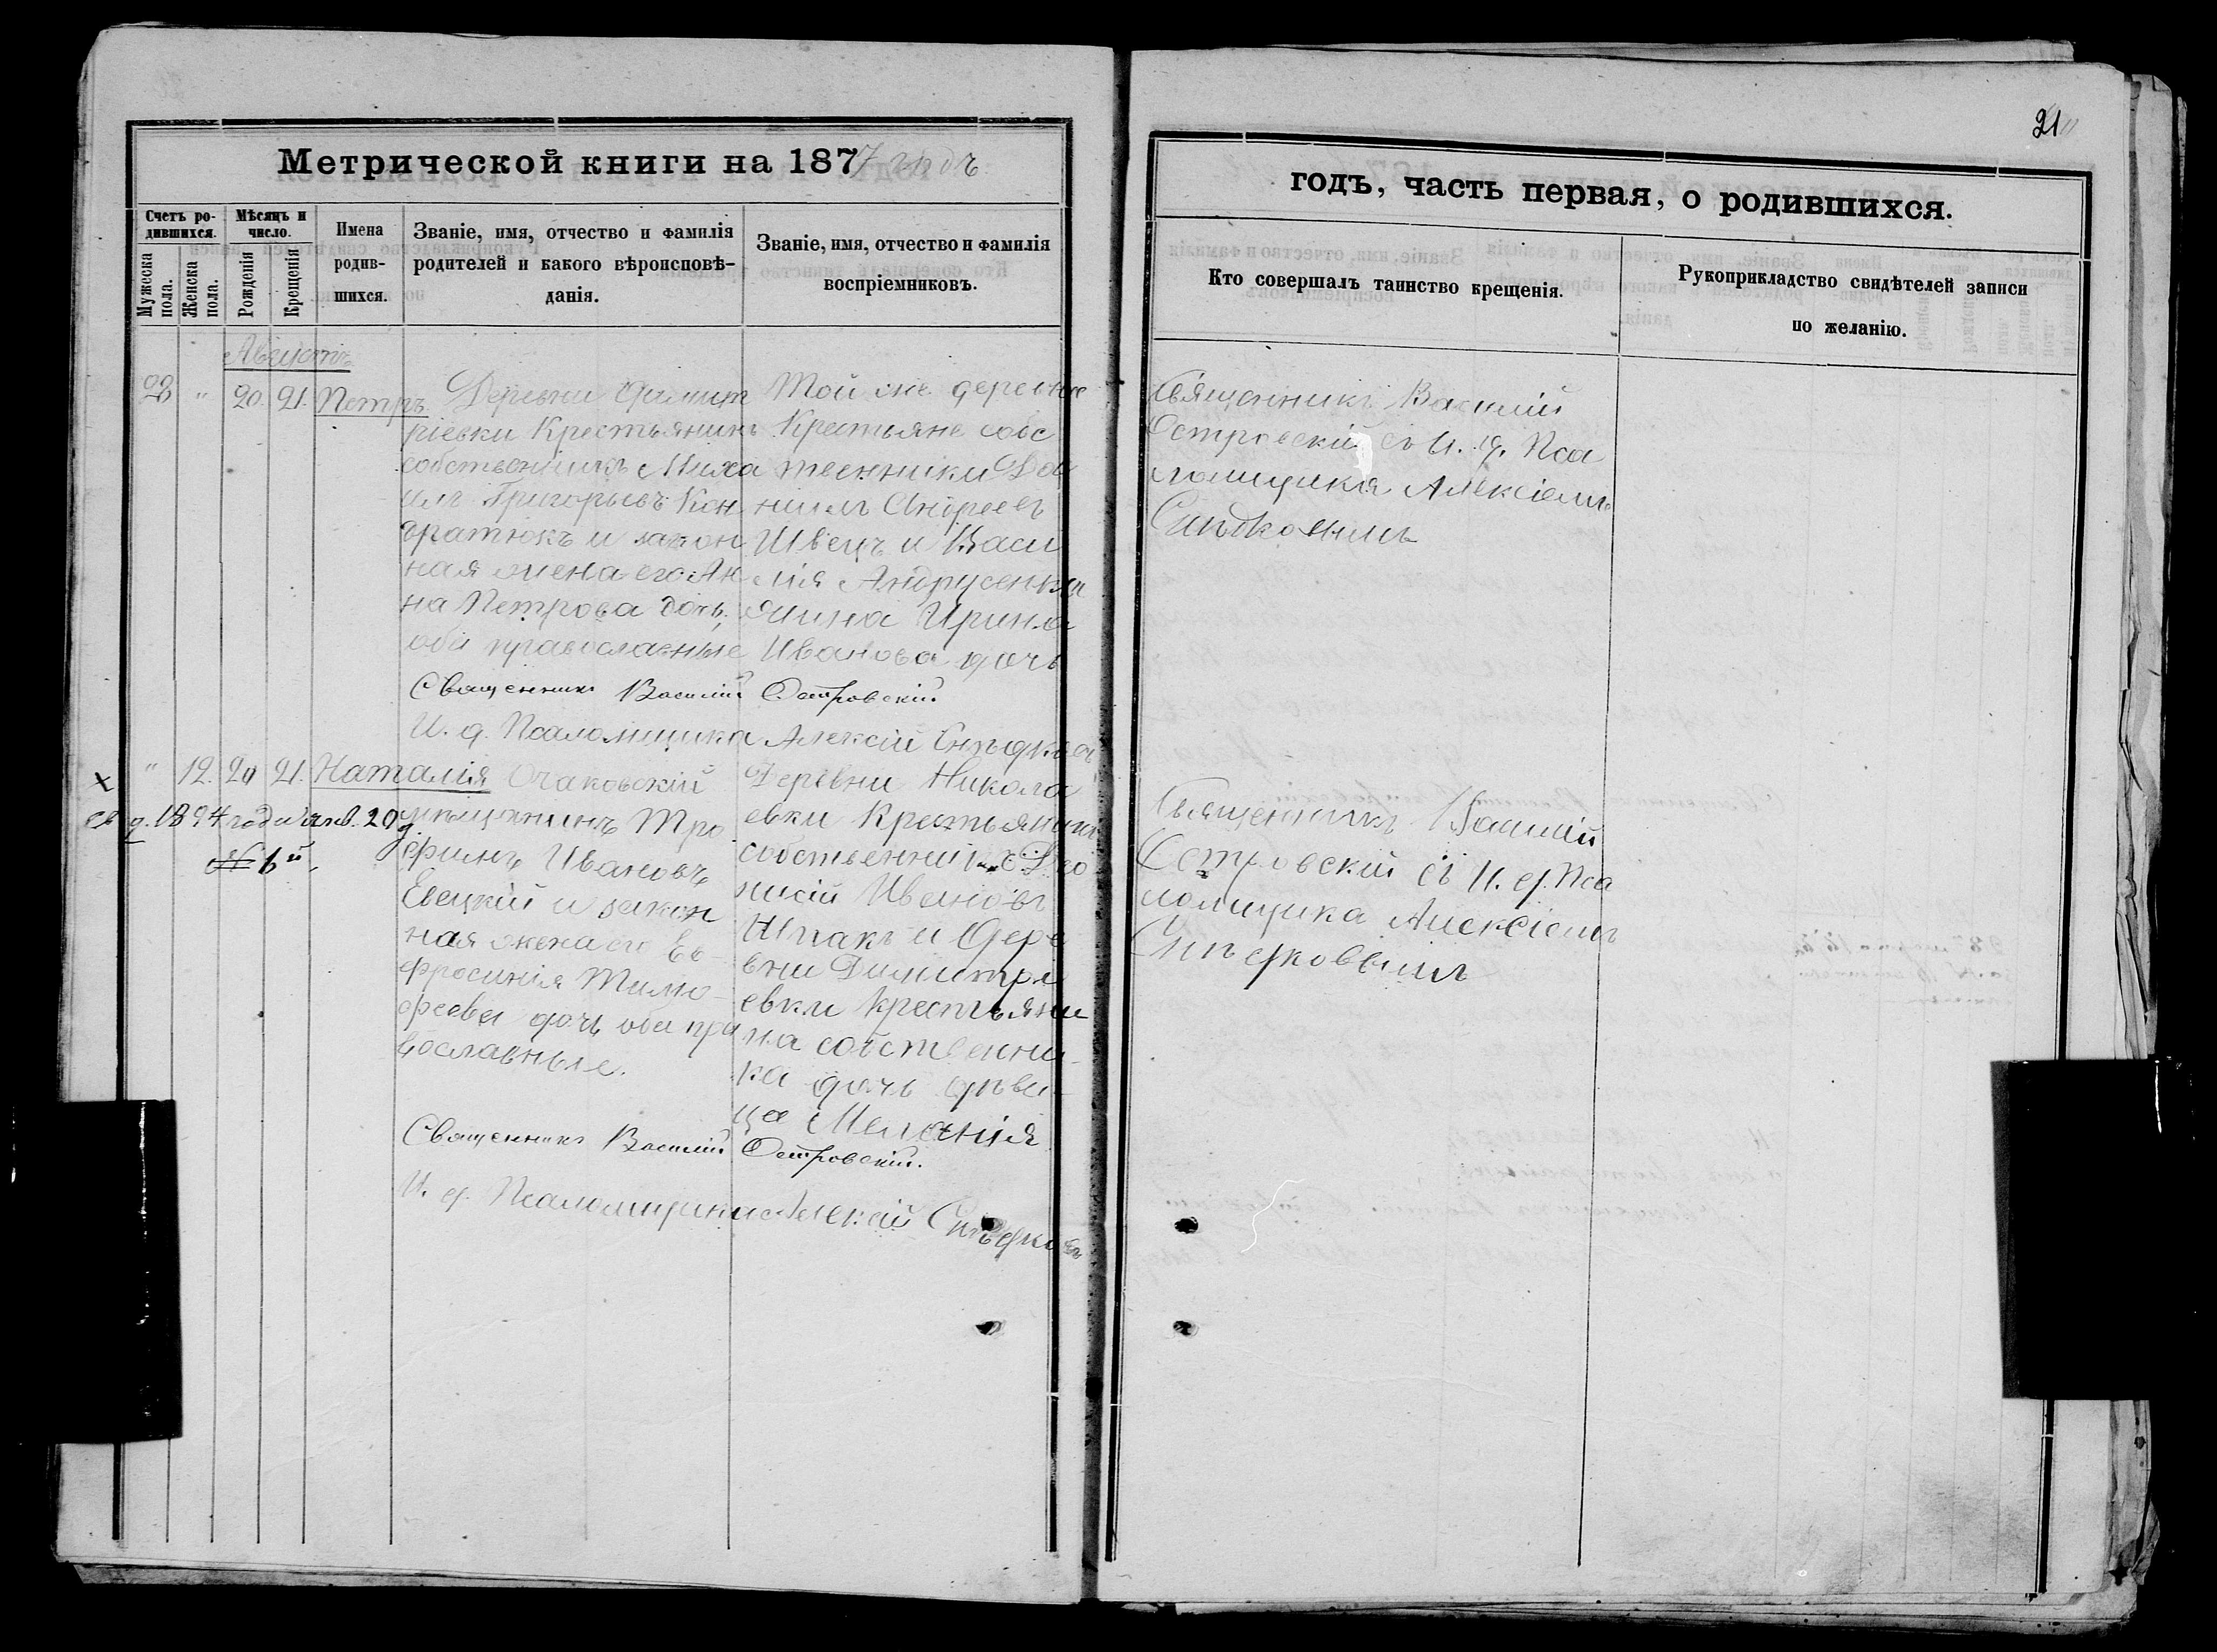 21
Метрической книги на 1877 годъ
годъ, часть первая, о родившихся.
Счетъ родившихся.
Мужеска пола.
Женска пола.
Мѣсяцъ и число.
Рожденія
Крещенія
Имена родившихся.
Званіе, имя, отчество и фамилія
родителей и какого вѣроисповѣ-
данія.
Званіе, имя, отчество и фамилія
воспріемниковъ.
Кто совершалъ таинство крещенія.
Рукоприкладство свидѣтелей записи
по желанію.
Августъ
28 " 20. 21. Петръ
Деревни Димит
ріевки Крестьянинъ
собственникъ Миха
илъ Григорьевъ Кон
дратюкъ и закон
ная жена его Ан
на Петрова дочь,
оба православные
Той же деревни
Крестьяне собс
твенники Да
ніилъ Андреевъ
Швецъ и Васи
лія Андрусенка
жина Ирина
Иванова дочь
Священникъ Василій
Островскій съ И. д. Пса
ломщика Алексіемъ
Священникъ Василій Островскій
И. д. Псаломщика Алексій
" 12. 20 21. Наталія
Очаковскій
мѣщанинъ Тро
фимъ Ивановъ
Евецкій и закон
ная жена его Ев-
фросинія Тимо-
феева дочь оба пра
вославные.
Деревни Никола
евки Крестьянинъ
собственникъ Діо
нисій Ивановъ
Шпакъ и Дере
вни Димитрі
евки крестьяни
на собственни-
ка дочь дѣви-
ца Меланія
Священникъ Василій
Островскій съ И. д. Пса
ломщика Алексіемъ
Священникъ Василій Островскій.
И. д. Псаломщика Алексій
х
св д. 1894 года янв. 20 д
№ 6й